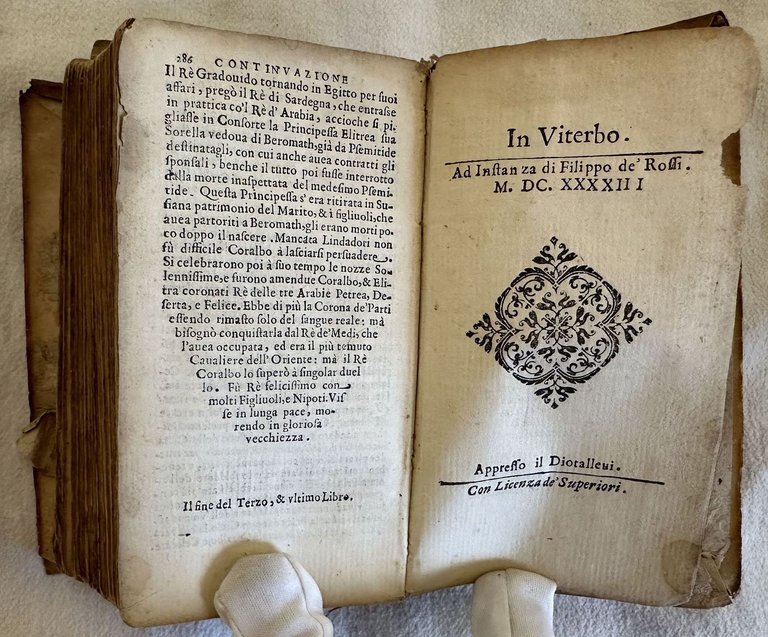 286 CONTINVAZIONE
Il Rè Gradouido tornando in Egitto per suoi
affari, pregò il Rè di Sardegna, che entrasse
in prattica co'l Rè d'Arabia, accioche si pi-
gliasse in Consorte la Principessa Elitrea sua
Sorella vedoua di Beromath, già da Psemitide
destinatagli, con cui anche auea contratti gli
sponsali, benche il tutto poi fusse interrotto
dalla morte inaspettata del medesimo Psemi-
tide. Questa Principessa s'era ritirata in Su-
siana patrimonio del Marito, & i figliuoli, che
auea partoriti à Beromath, gli erano morti po-
co doppo il nascere. Mancata Lindadori non
fù difficile Coralbo à lasciarsi persuadere.
Si celebrarono poi à suo tempo le nozze So-
lennissime, e furono amendue Coralbo, & Eli-
tra coronati Rè delle tre Arabie Petrea, De-
serta, e Felice. Ebbe di più la Corona de' Parti
essendo rimasto solo del sangue reale: mà
bisognò conquistarla dal Rè de' Medi, che
l'auea occupata, ed era il più temuto
Caualiere dell'Oriente: mà il Rè
Coralbo lo superò à singolar duel
lo. Fù Rè felicissimo con
molti Figliuoli, e Nipoti. Vis
se in lunga pace, mo-
rendo in gloriosa
vecchiezza.
Il fine del Terzo, & vltimo Libro.
In Viterbo.
Ad Instanza di Filippo de' Rossi.
M. DC. XXXXIII
Appresso il Diotalleui.
Con Licenza de' Superiori.